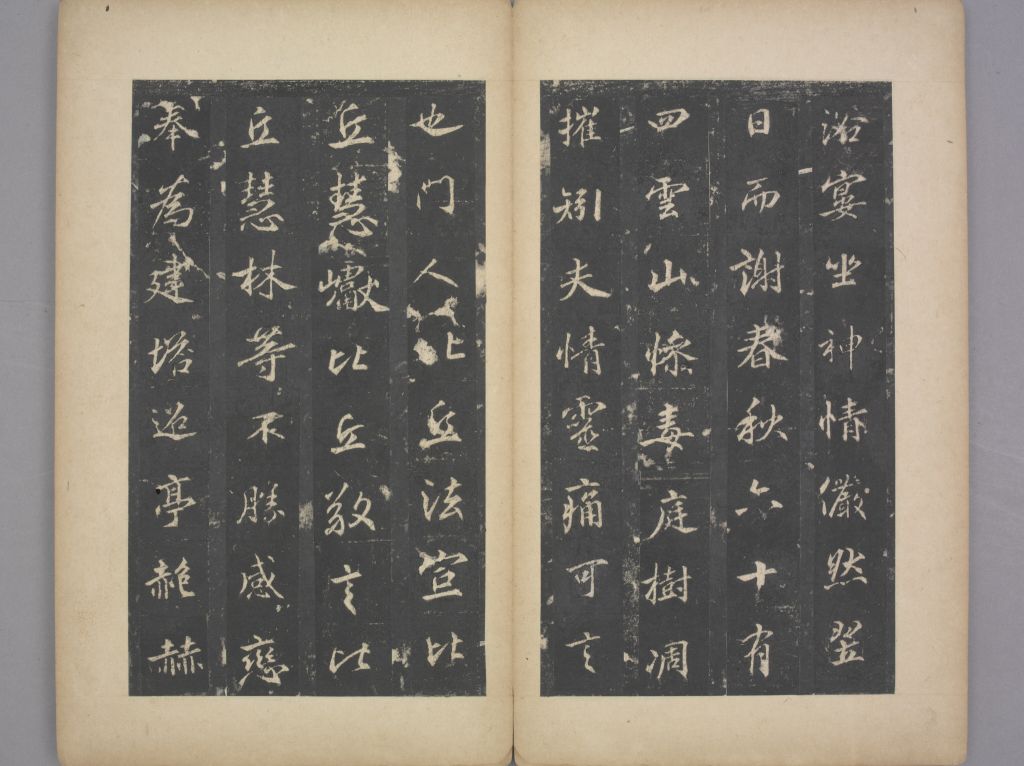 浴宴坐神情儼然翌
日而謝春秋六十有
四雲山慘毒庭樹凋
摧矧夫情靈痛可言
也門人比丘法宣比
丘慧巘比丘敬言比
丘慧林等不勝感戀
奉為建塔迢亭赩赫